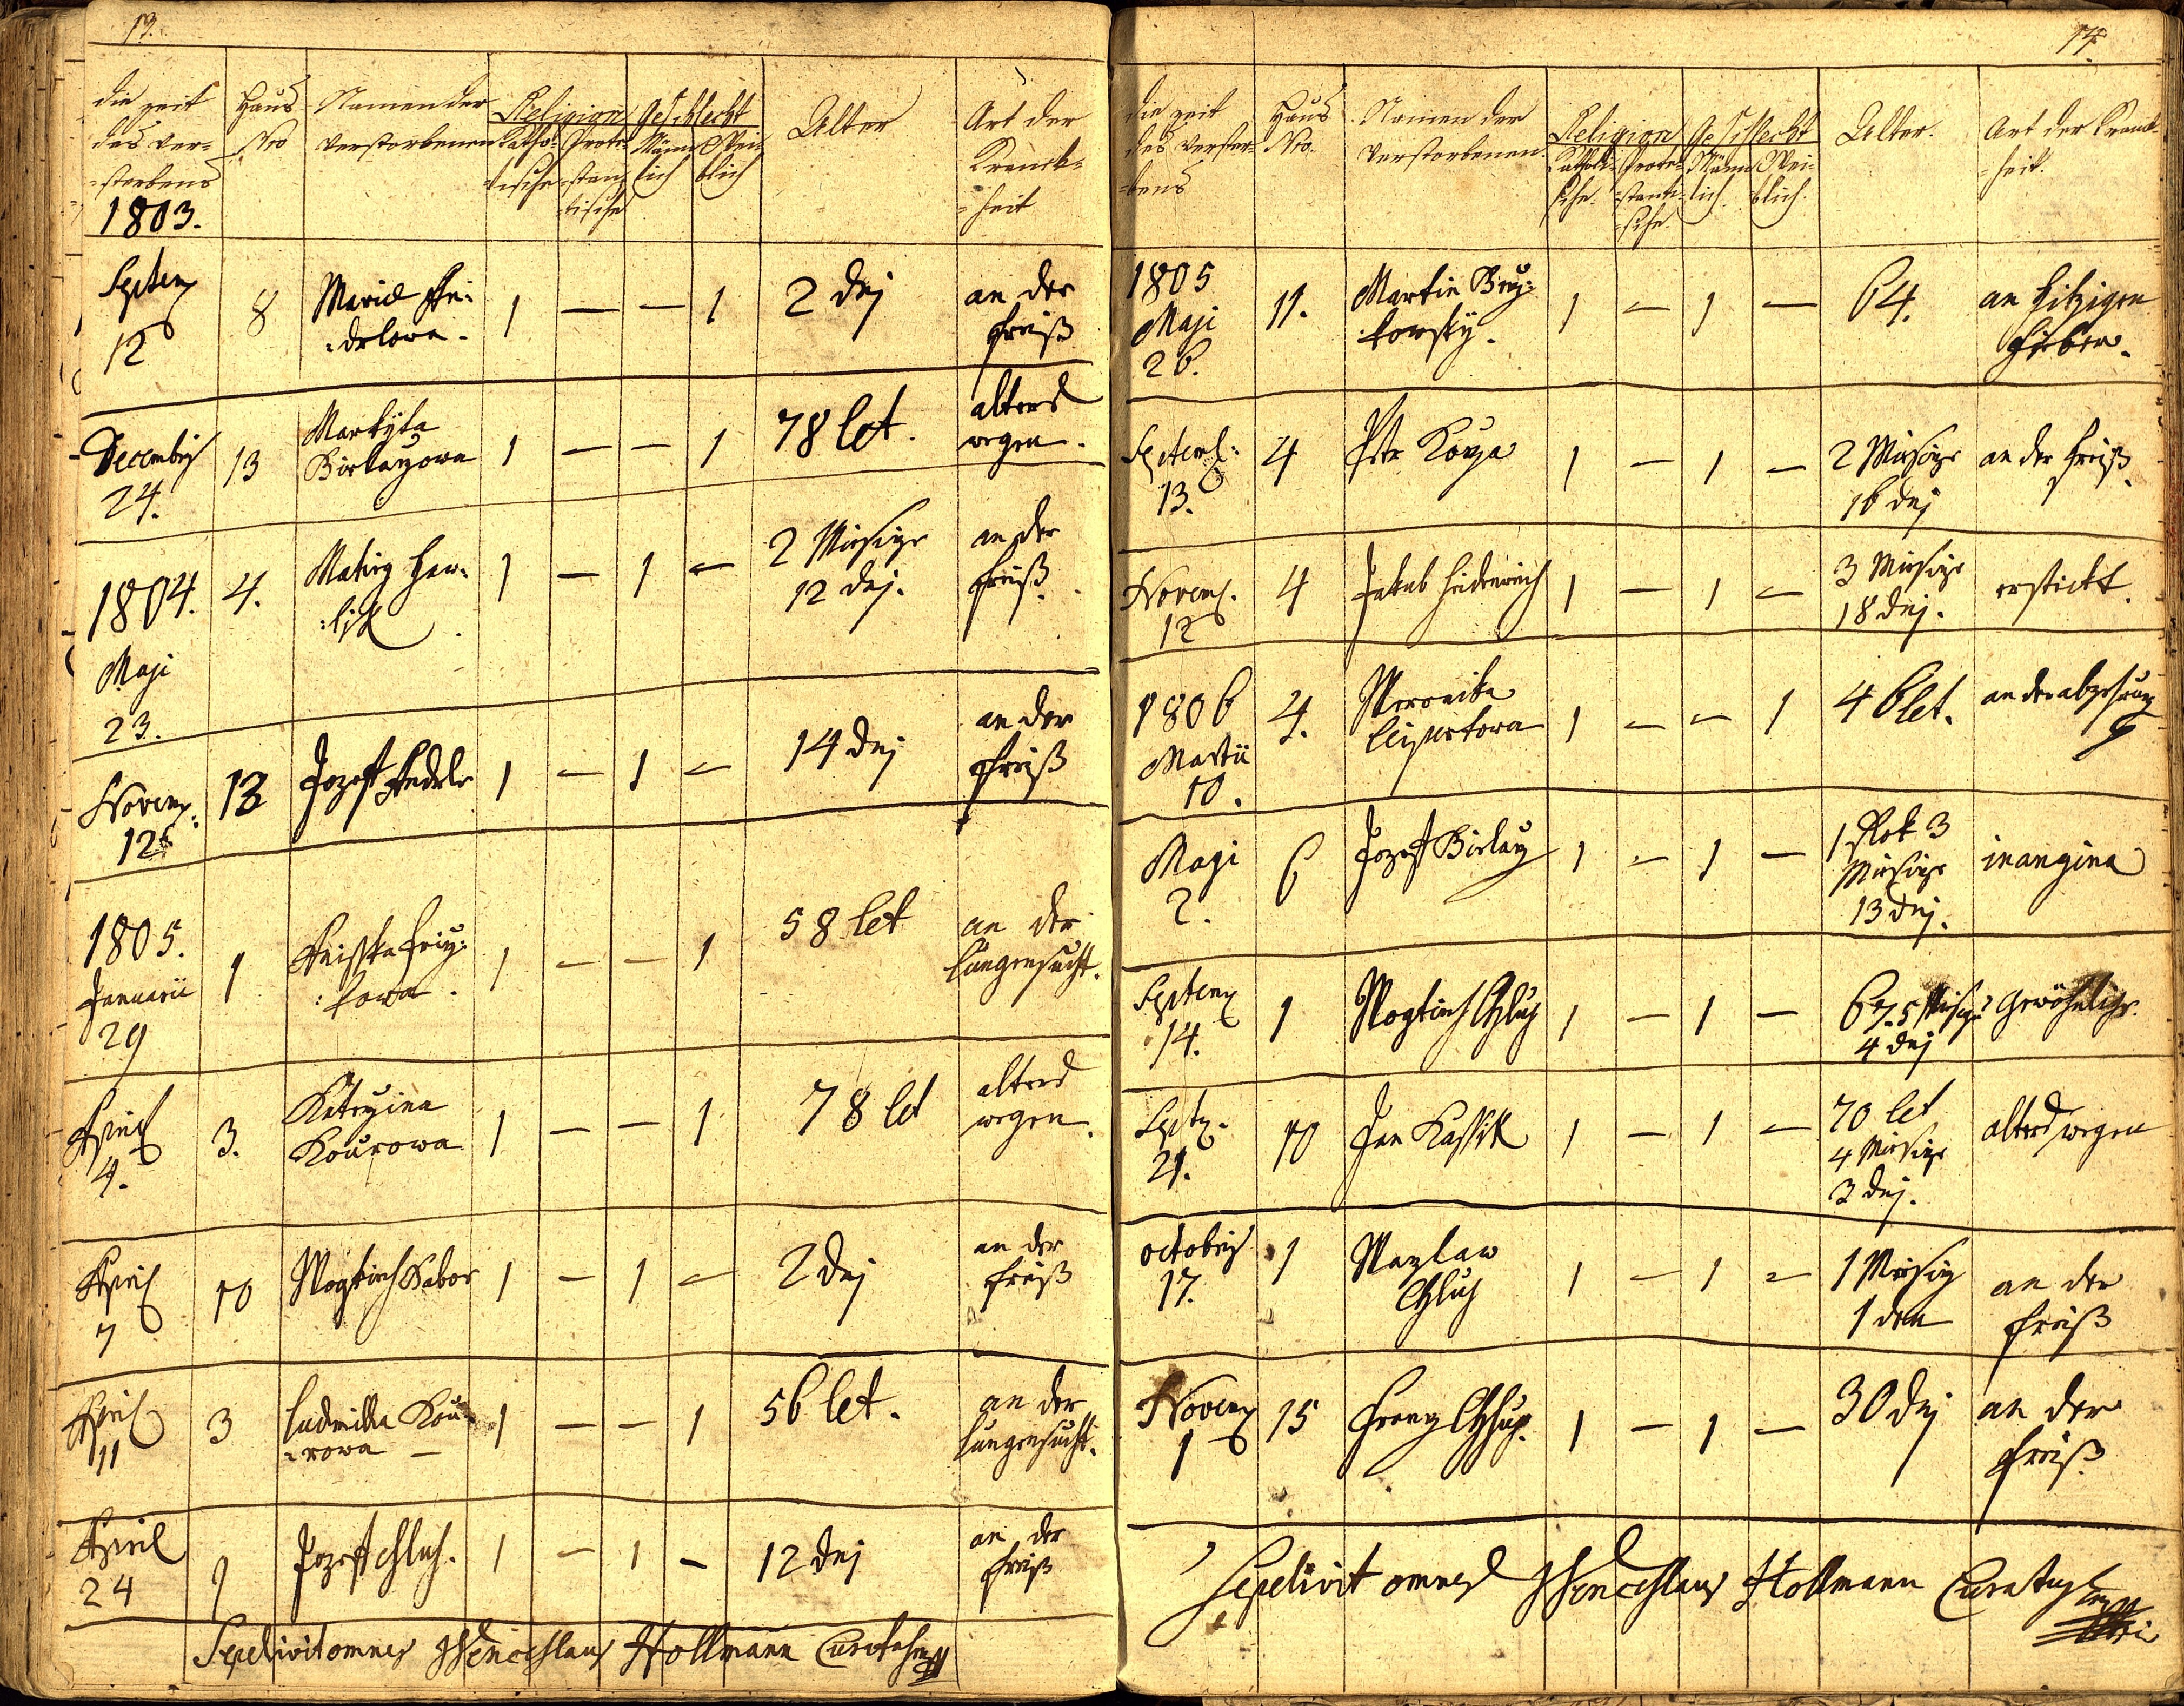 13.
die zeit des ver= =storbens 1803.
Haus Nro
Namen der verstorbenen
Religion Katho= =lische Prote= =stan= =tische
Geschlecht Männ= lich Wei= blich
Alter
Art der Kranck= =heit
Septem 12 8 Maria =delowa 1 — — 1 2 dnj an der fraiß
Decembris 24. 13 Markyta 1 — — 1 78 let. alters wegen.
1804. Maji 23. 4. Matieg Haw= =lik 1 — 1 — 2 Miesyce 12 dnj. an der fraiß.
Novem: 12 13 Jozeff 1 — 1 — 14 dnj an der fraiß
1805. Januarii 29 1 1 — — 1 58 let an der lungensucht.
April 4. 3. Katerzina Kourowa 1 — — 1 78 let alters wegen.
April 7 10 Wogtiech Tabor 1 — 1 — 2 dnj an der fraiß
April 11 3 Ludmilla Kou= =rowa — 1 — — 1 56 let. an der lungensucht.
April 24 1 Jozeff Chluh. 1 — 1 — 12 dnj an der fraiß
Sepelivit omnes Wenceslaus Hollmann Curatus
14.
die zeit des verstor= =bens
Haus Nro.
Namen der verstorbenen.
Religion Katholi= sche. Prote= =stanti= =sche.
Geschlecht Männ= lich. Wei= blich.
Alter.
Art der Kranck= =heit.
1805 Maji 26. 11. Martin =kowsky. 1 — 1 — 64. an hitzigen fieber.
Septemb: 13. 4 Petr 1 — 1 — 2 Miesyce 16 dnj an der fraiß.
Novem. 12 4 Jakub 1 — 1 — 3 Miesyce 18 dnj. erstickt.
1806 Martii 10. 4. Weronika 1 — — 1 46 let. an der abzehrung
Maji 2. 6 Jozeff 1 — 1 — 1 Rok 3 Miesyce 13 dnj. in angina
Septem 14. 1 Wogtiech Chluh 1 — 1 — 4 dnj Gewöhnliche.
Septz. 21. 10 Jan Kassik 1 — 1 — 70 let 4 Miesyce 3 dnj. alters wegen
octobris 17. 1 Wazlaw Chluh 1 — 1 — 1 Miesyc 1 den an der fraiß
Novem 1 15 Franz 1 — 1 — 30 dnj an der fraiß.
Sepelivit omnes Wenceslaus Hollmann Curatus